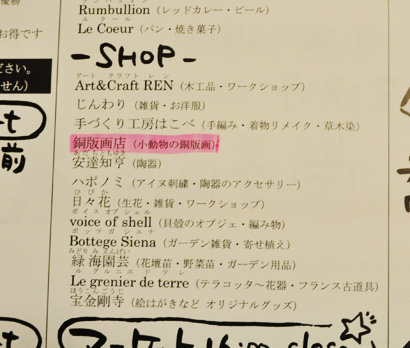 Rumbullion（レッドカレー・ビール）
ル クール
Le Coeur（パン・焼き菓子）
-SHOP-
アート クラフト レン
Art&Craft REN（木工品・ワークショップ）
じんわり（雑貨・お洋服）
手づくり工房はこべ（手編み・着物リメイク・草木染）
銅版画店（小動物の銅版画）
あだちともゆき
安達知亨（陶器）
ハポノミ（アイヌ刺繍・陶器のアクセサリー）
ひびか
日々花（生花・雑貨・ワークショップ）
ボイス オブ シェル
voice of shell（貝殻のオブジェ・編み物）
ボッテガ シエナ
Bottege Siena（ガーデン雑貨・寄せ植え）
みどりみ さんげい
緑海園芸（花壇苗・野菜苗・ガーデン用品）
ル グルニエ ド テレ
Le grenier de terre（テラコッタ〜花器・フランス古道具）
ほうこんごうじ
宝金剛寺（絵はがきなど オリジナルグッズ）
お得です
ださい。
せん）
前